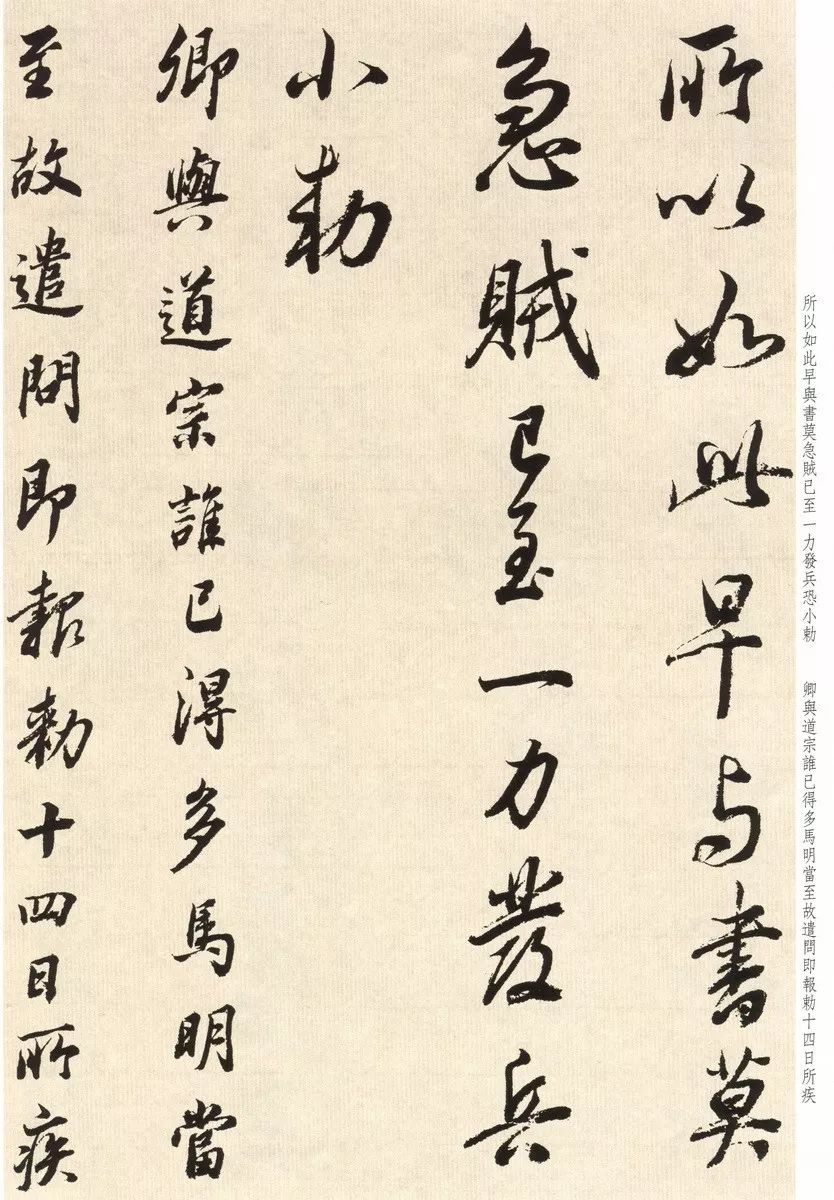 所以如此早与書莫
急賊已至一力發兵
小勅
卿與道宗誰已得多馬明當
至故遣問即報勅十四日所疾
所以如此早與書莫急賊已至一力發兵恐小勅
卿與道宗誰已得多馬明當至故遣問即報勅十四日所疾